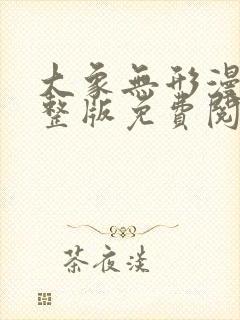 大象無形漫
整版免費閱
茶夜淡